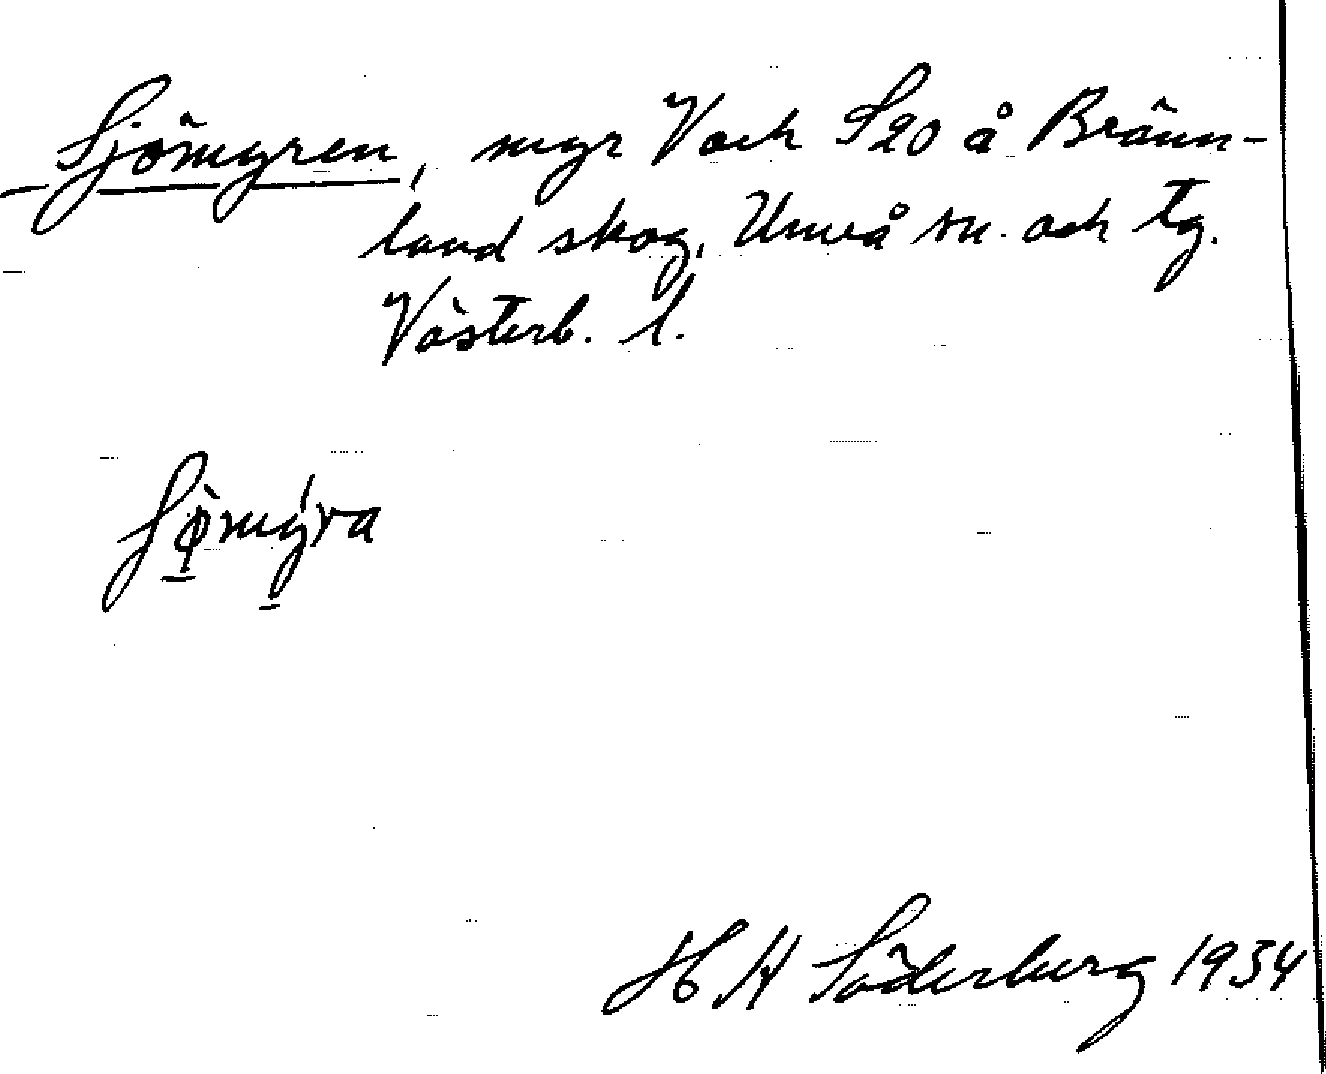 Sjömyren, myr V och S 20 å Bränn-
land skog, Umeå sn. och tg.
Västerb. l.
Sømýra
H H Söderberg 1934